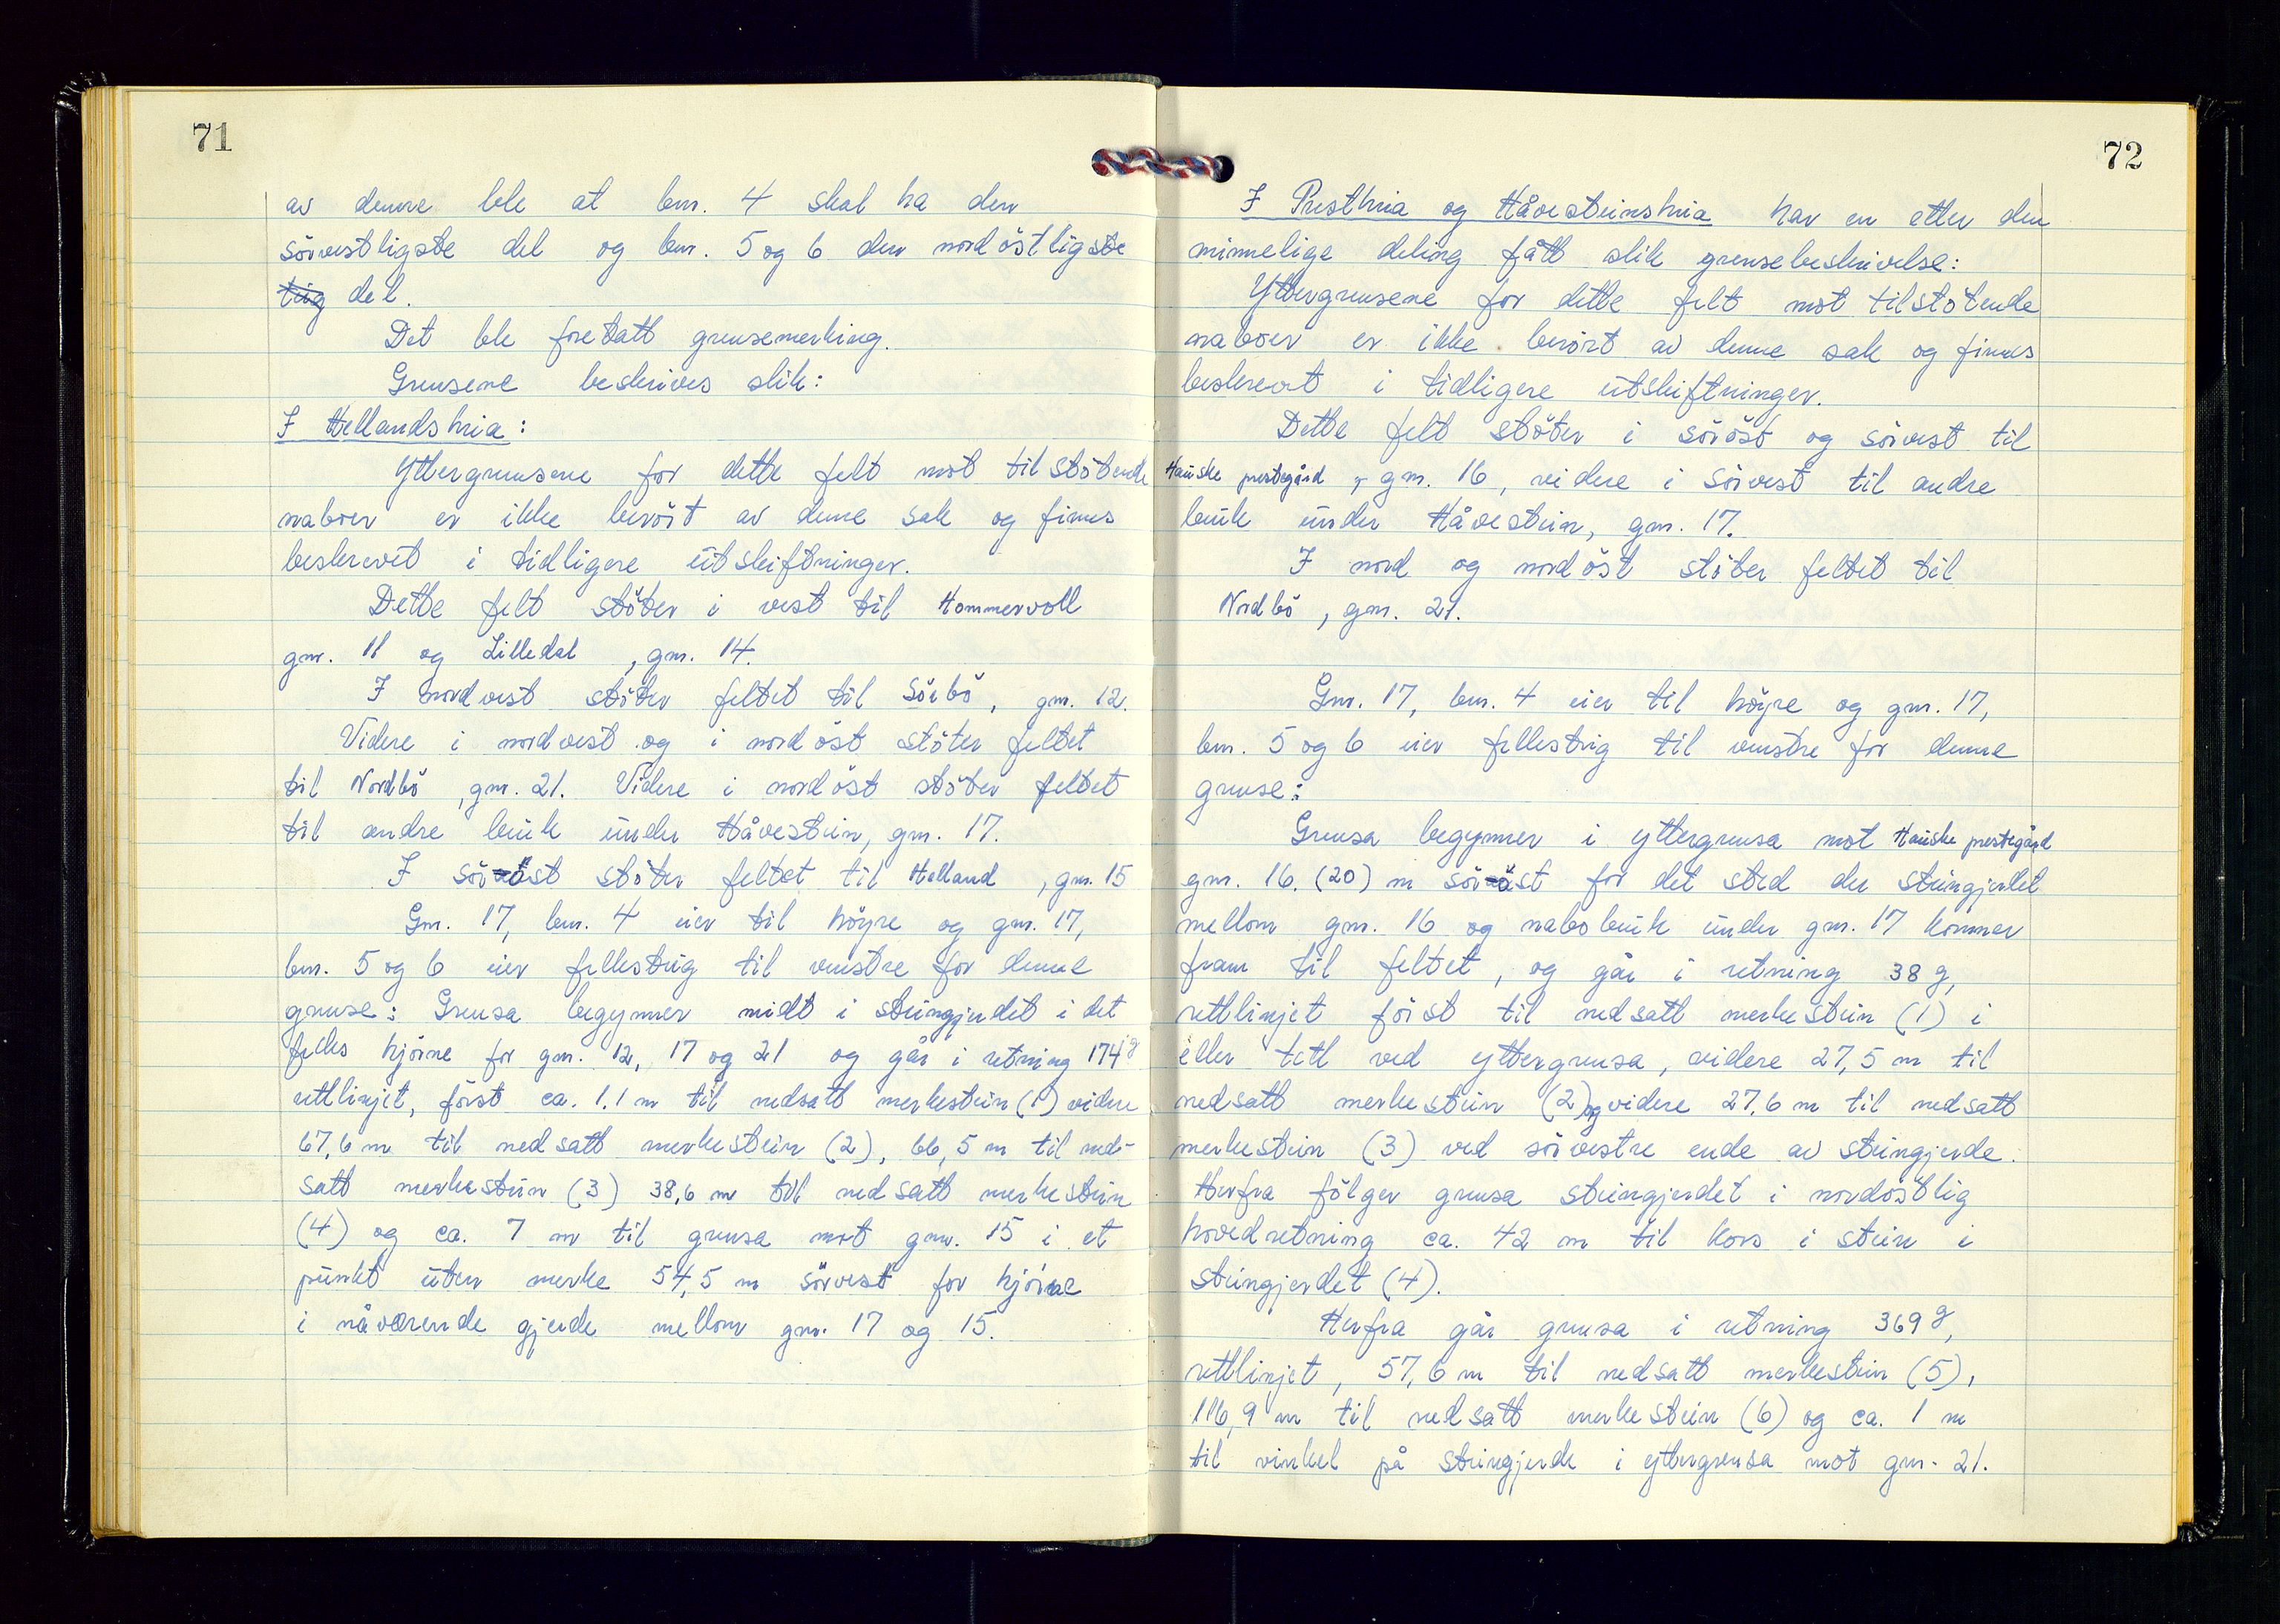 71
av denne ble at bnr. 4 skal ha den
sörvestligste del og bnr. 5 og 6 den nordöstligste
del.
Det ble foretatt grensemerking.
Grensene beskrives slik:
I Hellandskria:
Yttergrensene for dette felt mot tilstötende
naboer er ikke berört av denne sak og finnes
beskrevet i tidligere utskiftninger.
Dette felt stöter i vest til Hommervoll
gnr. 11 og Lilledal , gnr. 14.
I nordvest stöter feltet til Sörbö, gnr. 12.
Videre i nordvest og i nordöst stöter feltet
til Nordbö , gnr. 21. Videre i nordöst stöter feltet
til andre bruk under Håvestein, gnr. 17.
I söröst stöter feltet til Helland , gnr. 15
Gnr. 17, bnr. 4 eier til höyre og gnr. 17,
bnr. 5 og 6 eier fellestrig til venstre for denne
grense: Grensa begynner midt i steingjerdet i det
felles hjörne for gnr. 12, 17 og 21 og går i retning 174 g
rettlinjet, först ca. 1,1 m til nedsatt merkestein (1) videre
67,6 m til nedsatt merkestein (2), 66,5 m til ned-
satt merkestein (3) 38,6 m til nedsatt merkestein
(4) og ca. 7 m til grensa mot gnr. 15 i et
punkt uten merke 54,5 m sörvest for hjörne
i nåværende gjerde mellom gnr. 17 og 15.
72
I Presthria og Håvesteinshria har en etter den
minnelige deling fått slik grensebeskrivelse:
Yttergrensene for dette felt mot tilstötende
naboer er ikke berört av denne sak og finnes
beskrevet i tidligere utskiftninger.
Dette felt stöter i söröst og sörvest til
Hauske prestegård , gnr. 16, videre i sörvest til andre
bruk under Håvestein, gnr. 17.
I nord og nordöst stöter feltet til
Nordbö , gnr. 21.
Gnr. 17, bnr. 4 eier til höyre og gnr. 17,
bnr. 5 og 6 eier fellestrig til venstre for denne
grense:
Grensa begynner i yttergrensa mot Hauske prestegård
gnr. 16. (20) m söröst for det sted der steingjerdet
mellom gnr. 16 og nabobruk under gnr. 17 kommer
fram til feltet, og går i retning 38 g,
rettlinjet först til nedsatt merkestein (1) i
eller tett ved yttergrensa, videre 27,5 m til
nedsatt merkestein (2) og videre 27,6 m til nedsatt
merkestein (3) ved sörvestre ende av steingjerde.
Herfra fölger grensa steingjerdet i nordöstlig
hovedretning ca. 42 m til kors i stein i
steingjerdet (4).
Herfra går grensa i retning 369 g,
rettlinjet, 57,6 m til nedsatt merkestein (5),
116,9 m til nedsatt merkestein (6) og ca. 1 m
til vinkel på steingjerde i yttergrensa mot gnr. 21.